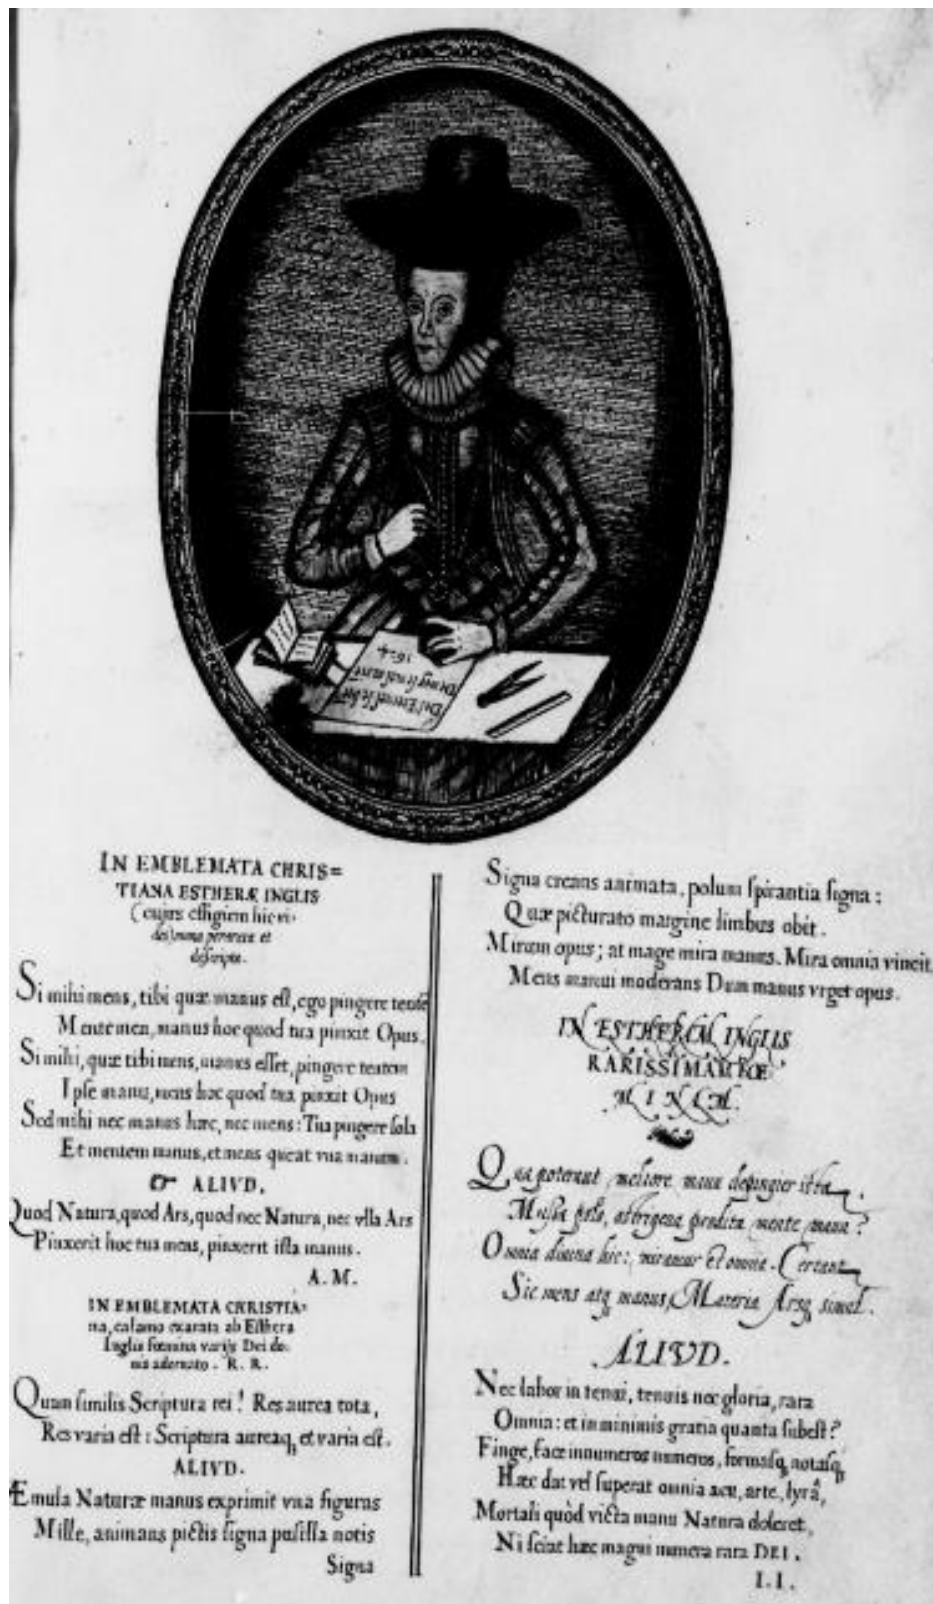 1624
De moy le mal
De l'Eternel le bien
IN EMBLEMATA CHRIS=
TIANA ESTHERÆ INGLIS
(cujus effigiem hic vi-
des) manu
descripta.
Si mihi mens, tibi quæ manus est, ego pingere tentē
Mente mea, manus hoc quod tua pinxit Opus.
Si mihi, quæ tibi mens, manus esset, pingere tentem
Ipse manu, mens hoc quod tua pinxit Opus
Sed mihi nec manus hæc, nec mens: Tua pingere sola
Et mentem manus, et mens queat vna manum.
ALIVD.
Quod Natura, quod Ars, quod nec Natura, nec vlla Ars
Pinxerit hoc tua mens, pinxerit ista manus.
A. M.
IN EMBLEMATA CHRISTIA-
na, calamo exarata ab Esthera
Inglis fœmina varijs Dei do-
nis adornato. R. R.
Quam similis Scriptura rei! Res aurea tota,
Res varia est: Scriptura aureaq, et varia est.
ALIVD.
Æmula Naturæ manus exprimit vna figuras
Mille, animans pictis signa pusilla notis
Signa
Signa creans animata, polum spirantia signa:
Quæ picturato margine limbus obit.
Mirum opus; at mage mira manus. Mira omnia vincit
Mens manui moderans Dum manus vrget opus.
IN ESTHERAM INGLIS
RARISSIMAM FOE
MINAM.
Qua poterant meliore manu depingier ista,
Musa polo, prædita mente manu?
Omnia divina hic: miramur et omnia. Certant
Sic mens atq manus, Materia Arsq simul.
ALIVD.
Nec labor in tenui, tenuis nec gloria, rara
Omnia: et in minimis gratia quanta subest?
Finge, face innumeros numeros, formasq, notasq,
Hæc dat vel superat omnia acu, arte, lyrâ,
Mortali quòd victa manu Natura doleret,
Ni sciat hæc magni munera rara DEI.
I. I.